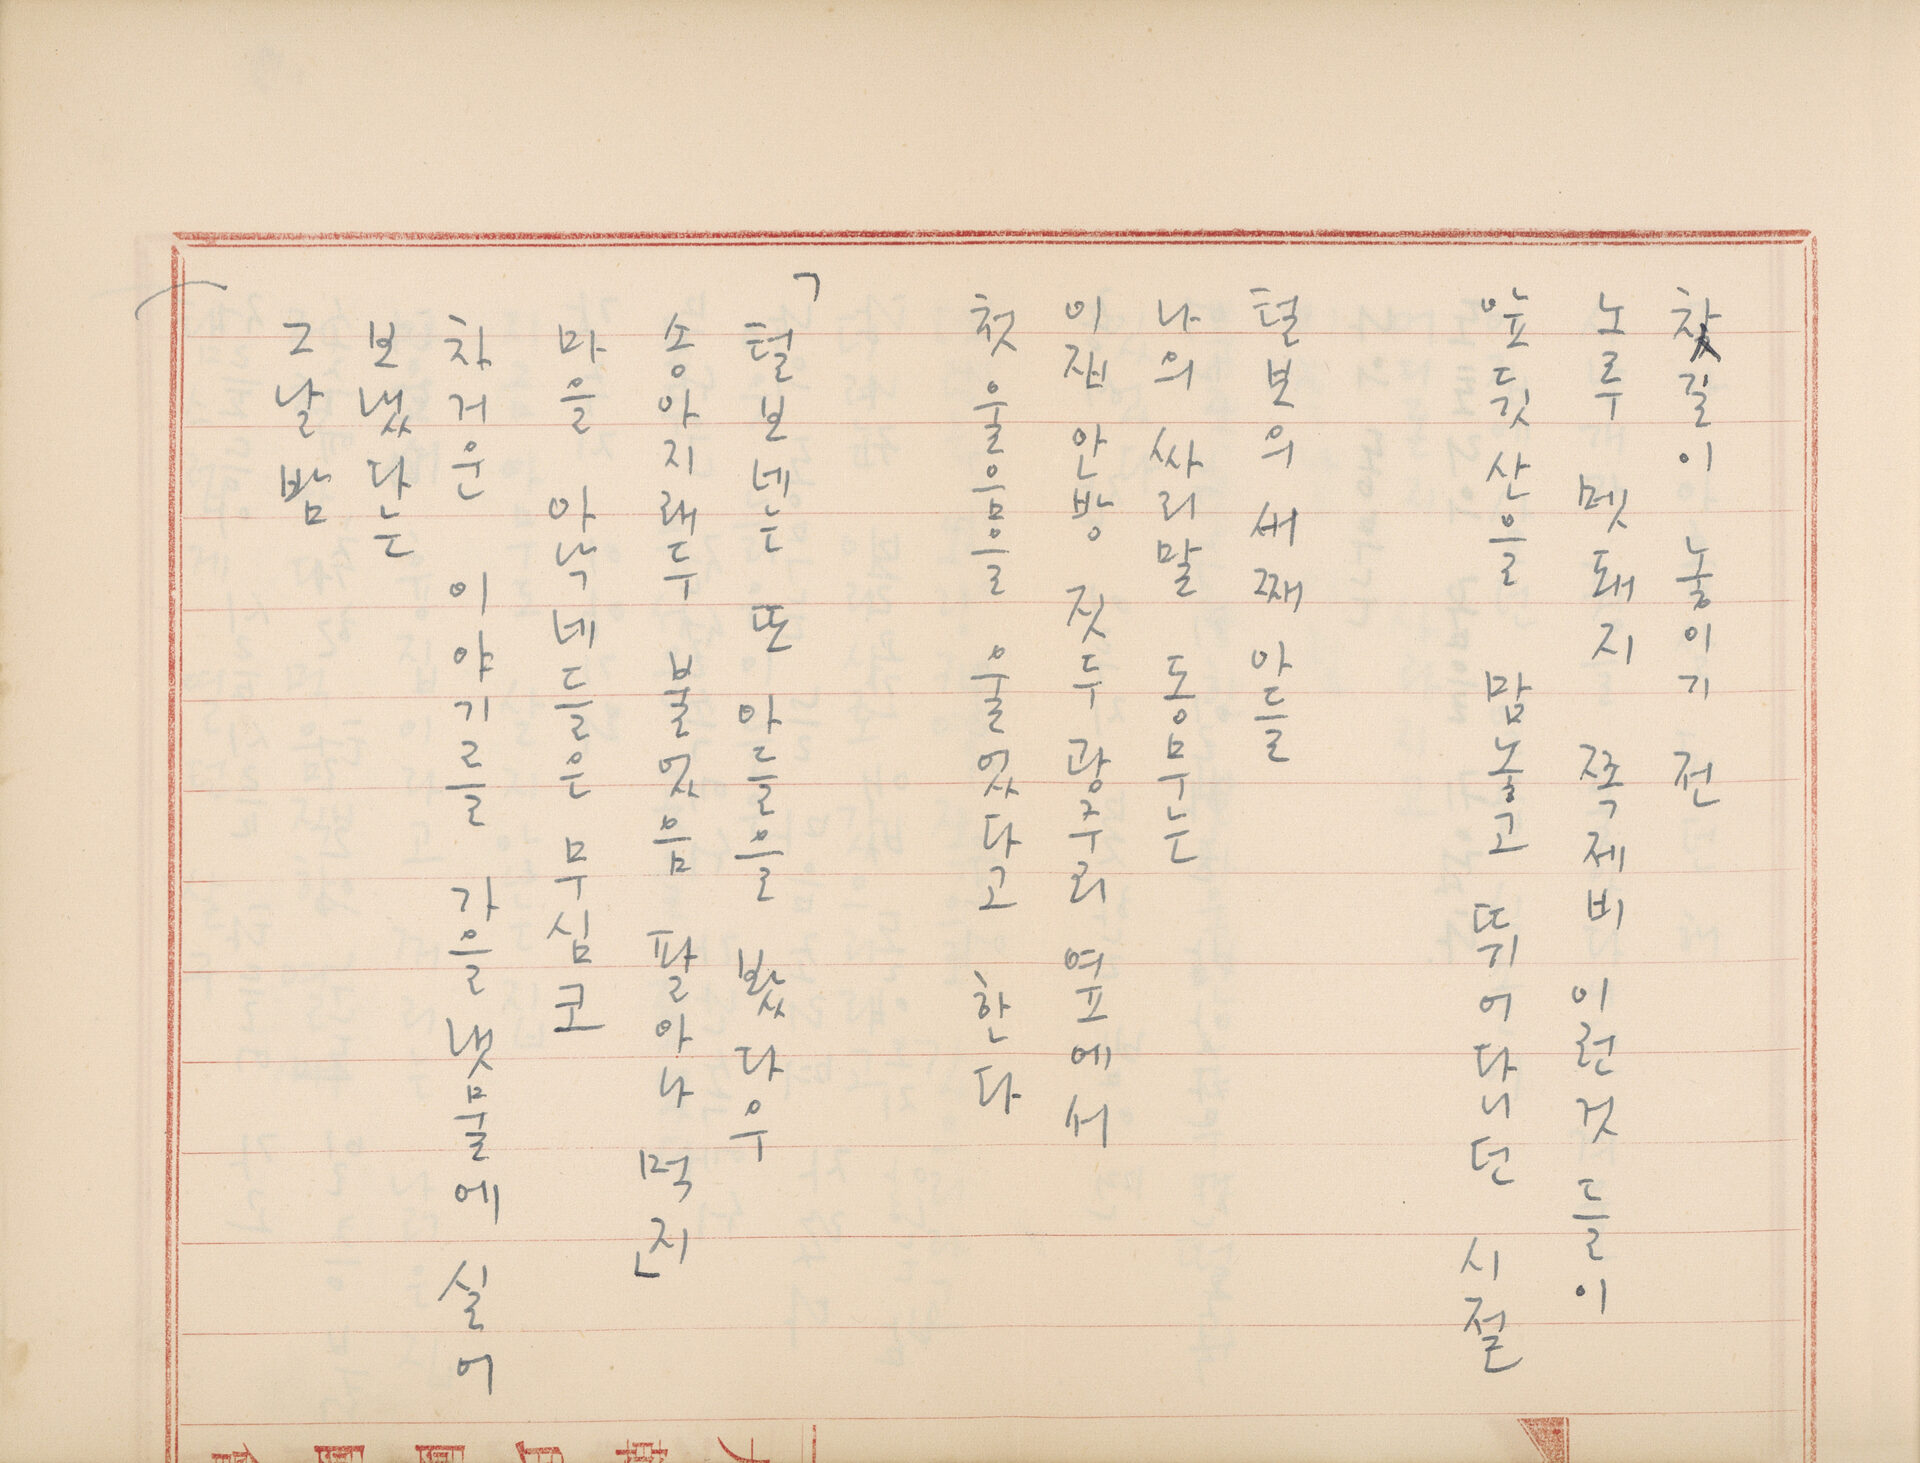 찻길이 놓이기 전
노루 멧돼지 쪽제비 이런것들이
앞뒷산을 맘놓고 뛰어다니던 시절
털보의 써째 아들
나의 싸리말 동무는
이집 안방 짓두광주리 옆에서
첫 울음을 울었다고 한다
「털보네는 또 아들을 봤다우
송아지래두 불었음 팔아나 먹지」
마을 아낙네들은 무심코
차거운 이야기를 가을 냇물에 실어
보냈다는
그날밤